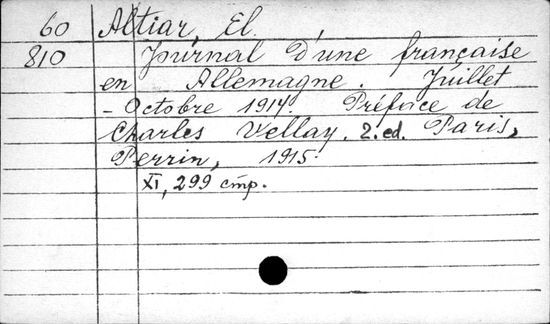 60 Altiar, El.
810 Journal d'une française
en Allemagne. Juillet
- Octobre 1914. Préface de
Charles Vellay. 2. ed. Paris,
Perrin, 1915.
XI, 299 стр.